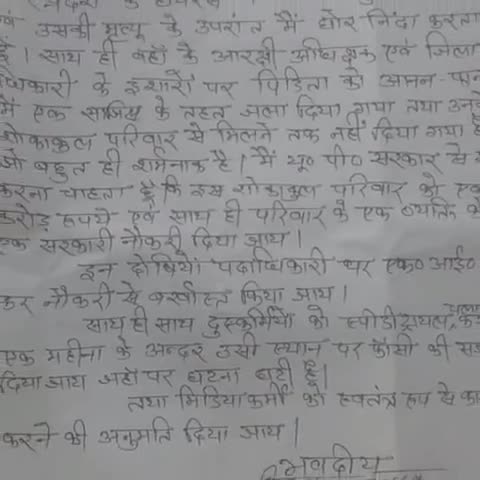 उसकी मृत्यु के उपरांत मैं घोर निंदा करता
हूँ। साथ ही वहाँ के आरक्षी अधिक्षक एवं जिला
धिकारी के इशारों पर पिडिता को आमन-फानन
में एक साजिस के तहत जला दिया गया तथा उनके
शोकाकुल परिवार से मिलने तक नहीं दिया गया है
जो बहुत ही शर्मनाक है। मैं यू० पी० सरकार से
करना चाहता हूँ कि इस शोकाकुल परिवार को एक
करोड़ रूपये एवं साथ ही परिवार के एक व्यक्ति को
एक सरकारी नौकरी दिया जाय।
इन दोषियों पदाधिकारी पर एफ० आई०
कर नौकरी से बर्खास्त किया जाय।
साथ ही साथ दुस्कर्मियों को स्पीडी ट्रायल चला
एक महीना के अन्दर उसी स्थान पर फाँसी की सजा
दिया जाय जहाँ पर घटना घटी है।
तथा मिडियाकर्मी को स्वतंत्र रूप से का
करने की अनुमति दिया जाय।
भवदीय